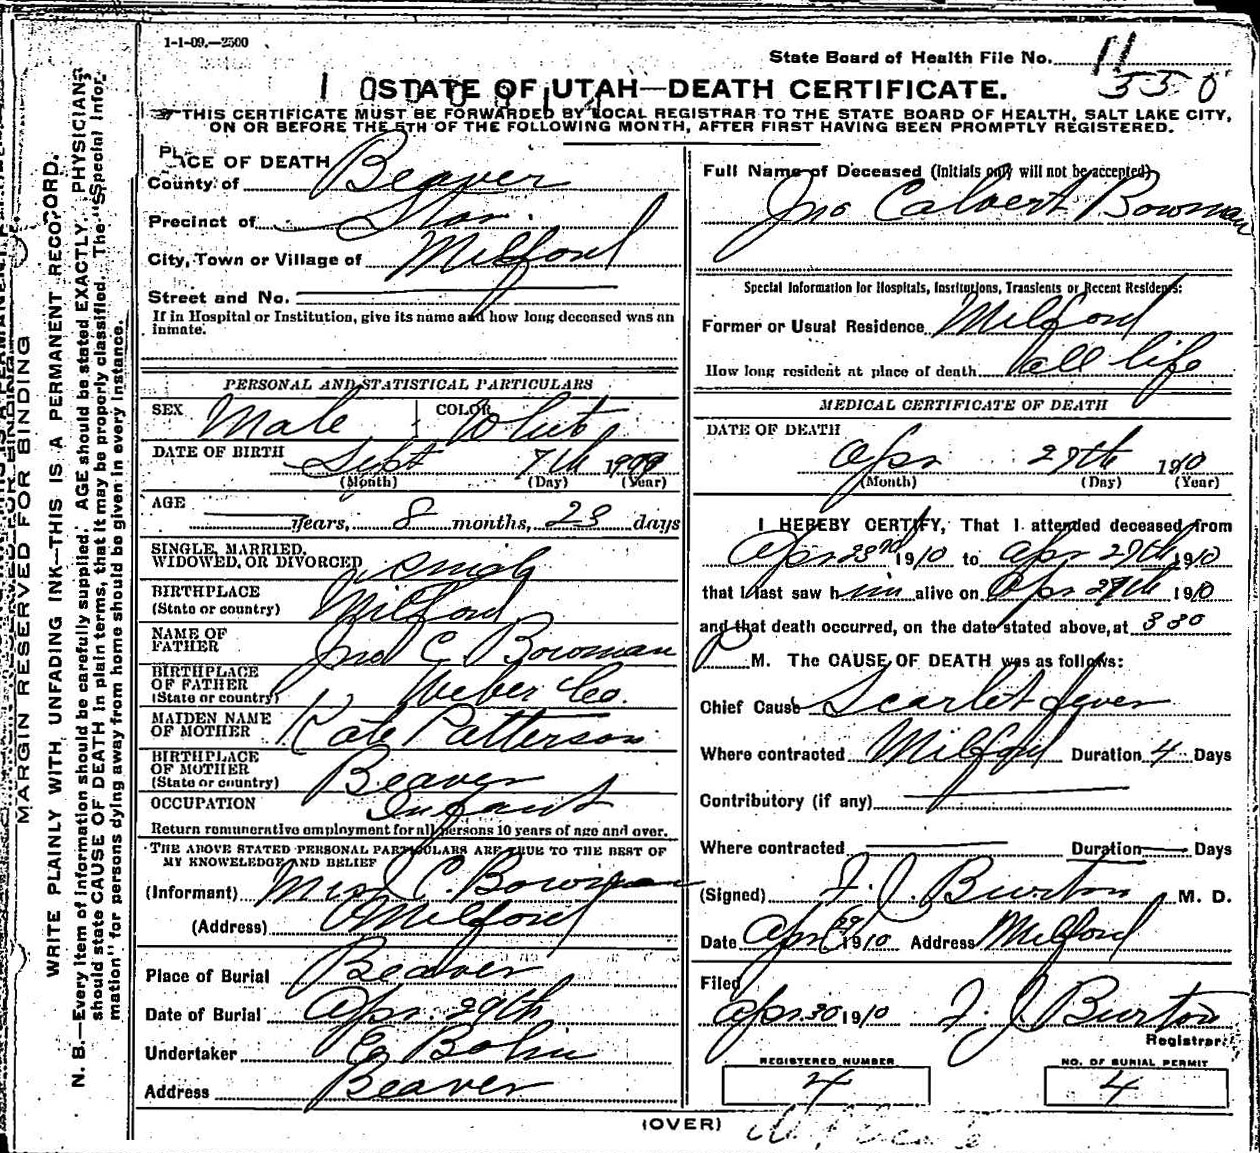 1-1-09.—2500
State Board of Health File No. 11
550
STATE OF UTAH—DEATH CERTIFICATE.
THIS CERTIFICATE MUST BE FORWARDED BY LOCAL REGISTRAR TO THE STATE BOARD OF HEALTH, SALT LAKE CITY,
ON OR BEFORE THE 5TH OF THE FOLLOWING MONTH, AFTER FIRST HAVING BEEN PROMPTLY REGISTERED.
PLACE OF DEATH
County of Beaver
Precinct of Star
City, Town or Village of Milford
Street and No.
If in Hospital or Institution, give its name and how long deceased was an
inmate.
PERSONAL AND STATISTICAL PARTICULARS
SEX Male COLOR White
DATE OF BIRTH Sept 7th 1909
(Month) (Day) (Year)
AGE years, 8 months, 23 days
SINGLE, MARRIED,
WIDOWED, OR DIVORCED Single
BIRTHPLACE
(State or country) Milford
NAME OF
FATHER Jno C. Bowman
BIRTHPLACE
OF FATHER
(State or country) Weber Co.
MAIDEN NAME
OF MOTHER Kate Patterson
BIRTHPLACE
OF MOTHER
(State or country) Beaver
OCCUPATION Infant
Return remunerative employment for all persons 10 years of age and over.
THE ABOVE STATED PERSONAL PARTICULARS ARE TRUE TO THE BEST OF
MY KNOWELEDGE AND BELIEF
(Informant) Mrs J C. Bowman
(Address) Milford
Place of Burial Beaver
Date of Burial Apr. 29th
Undertaker
Address Beaver
Full Name of Deceased (Initials only will not be accepted)
Jno Calvert Bowman
Special Information for Hospitals, Institutions, Transients or Recent Residents:
Former or Usual Residence Milford
How long resident at place of death all life
MEDICAL CERTIFICATE OF DEATH
DATE OF DEATH
Apr 29th 1910
(Month) (Day) (Year)
I HEREBY CERTIFY, That I attended deceased from
Apr 23rd 1910 to Apr 29th 1910
that I last saw him alive on Apr 29th 1910
and that death occurred, on the date stated above, at 330
P M. The CAUSE OF DEATH was as follows:
Chief Cause Scarlet fever
Where contracted Milford Duration 4 Days
Contributory (if any)
Where contracted Duration Days
(Signed) F. J. Burton M. D.
Date Apr 1910 Address Milford
Filed
Apr. 30 1910 F. J. Burton
Registrar.
REGISTERED NUMBER
4
NO. OF BURIAL PERMIT
4
(OVER)
MARGIN RESERVED FOR BINDING
WRITE PLAINLY WITH UNFADING INK—THIS IS A PERMANENT RECORD.
N. B.—Every item of information should be carefully supplied. AGE should be stated EXACTLY. PHYSICIANS
should state CAUSE OF DEATH in plain terms, that it may be properly classified. The "Special Infor-
mation" for persons dying away from home should be given in every instance.